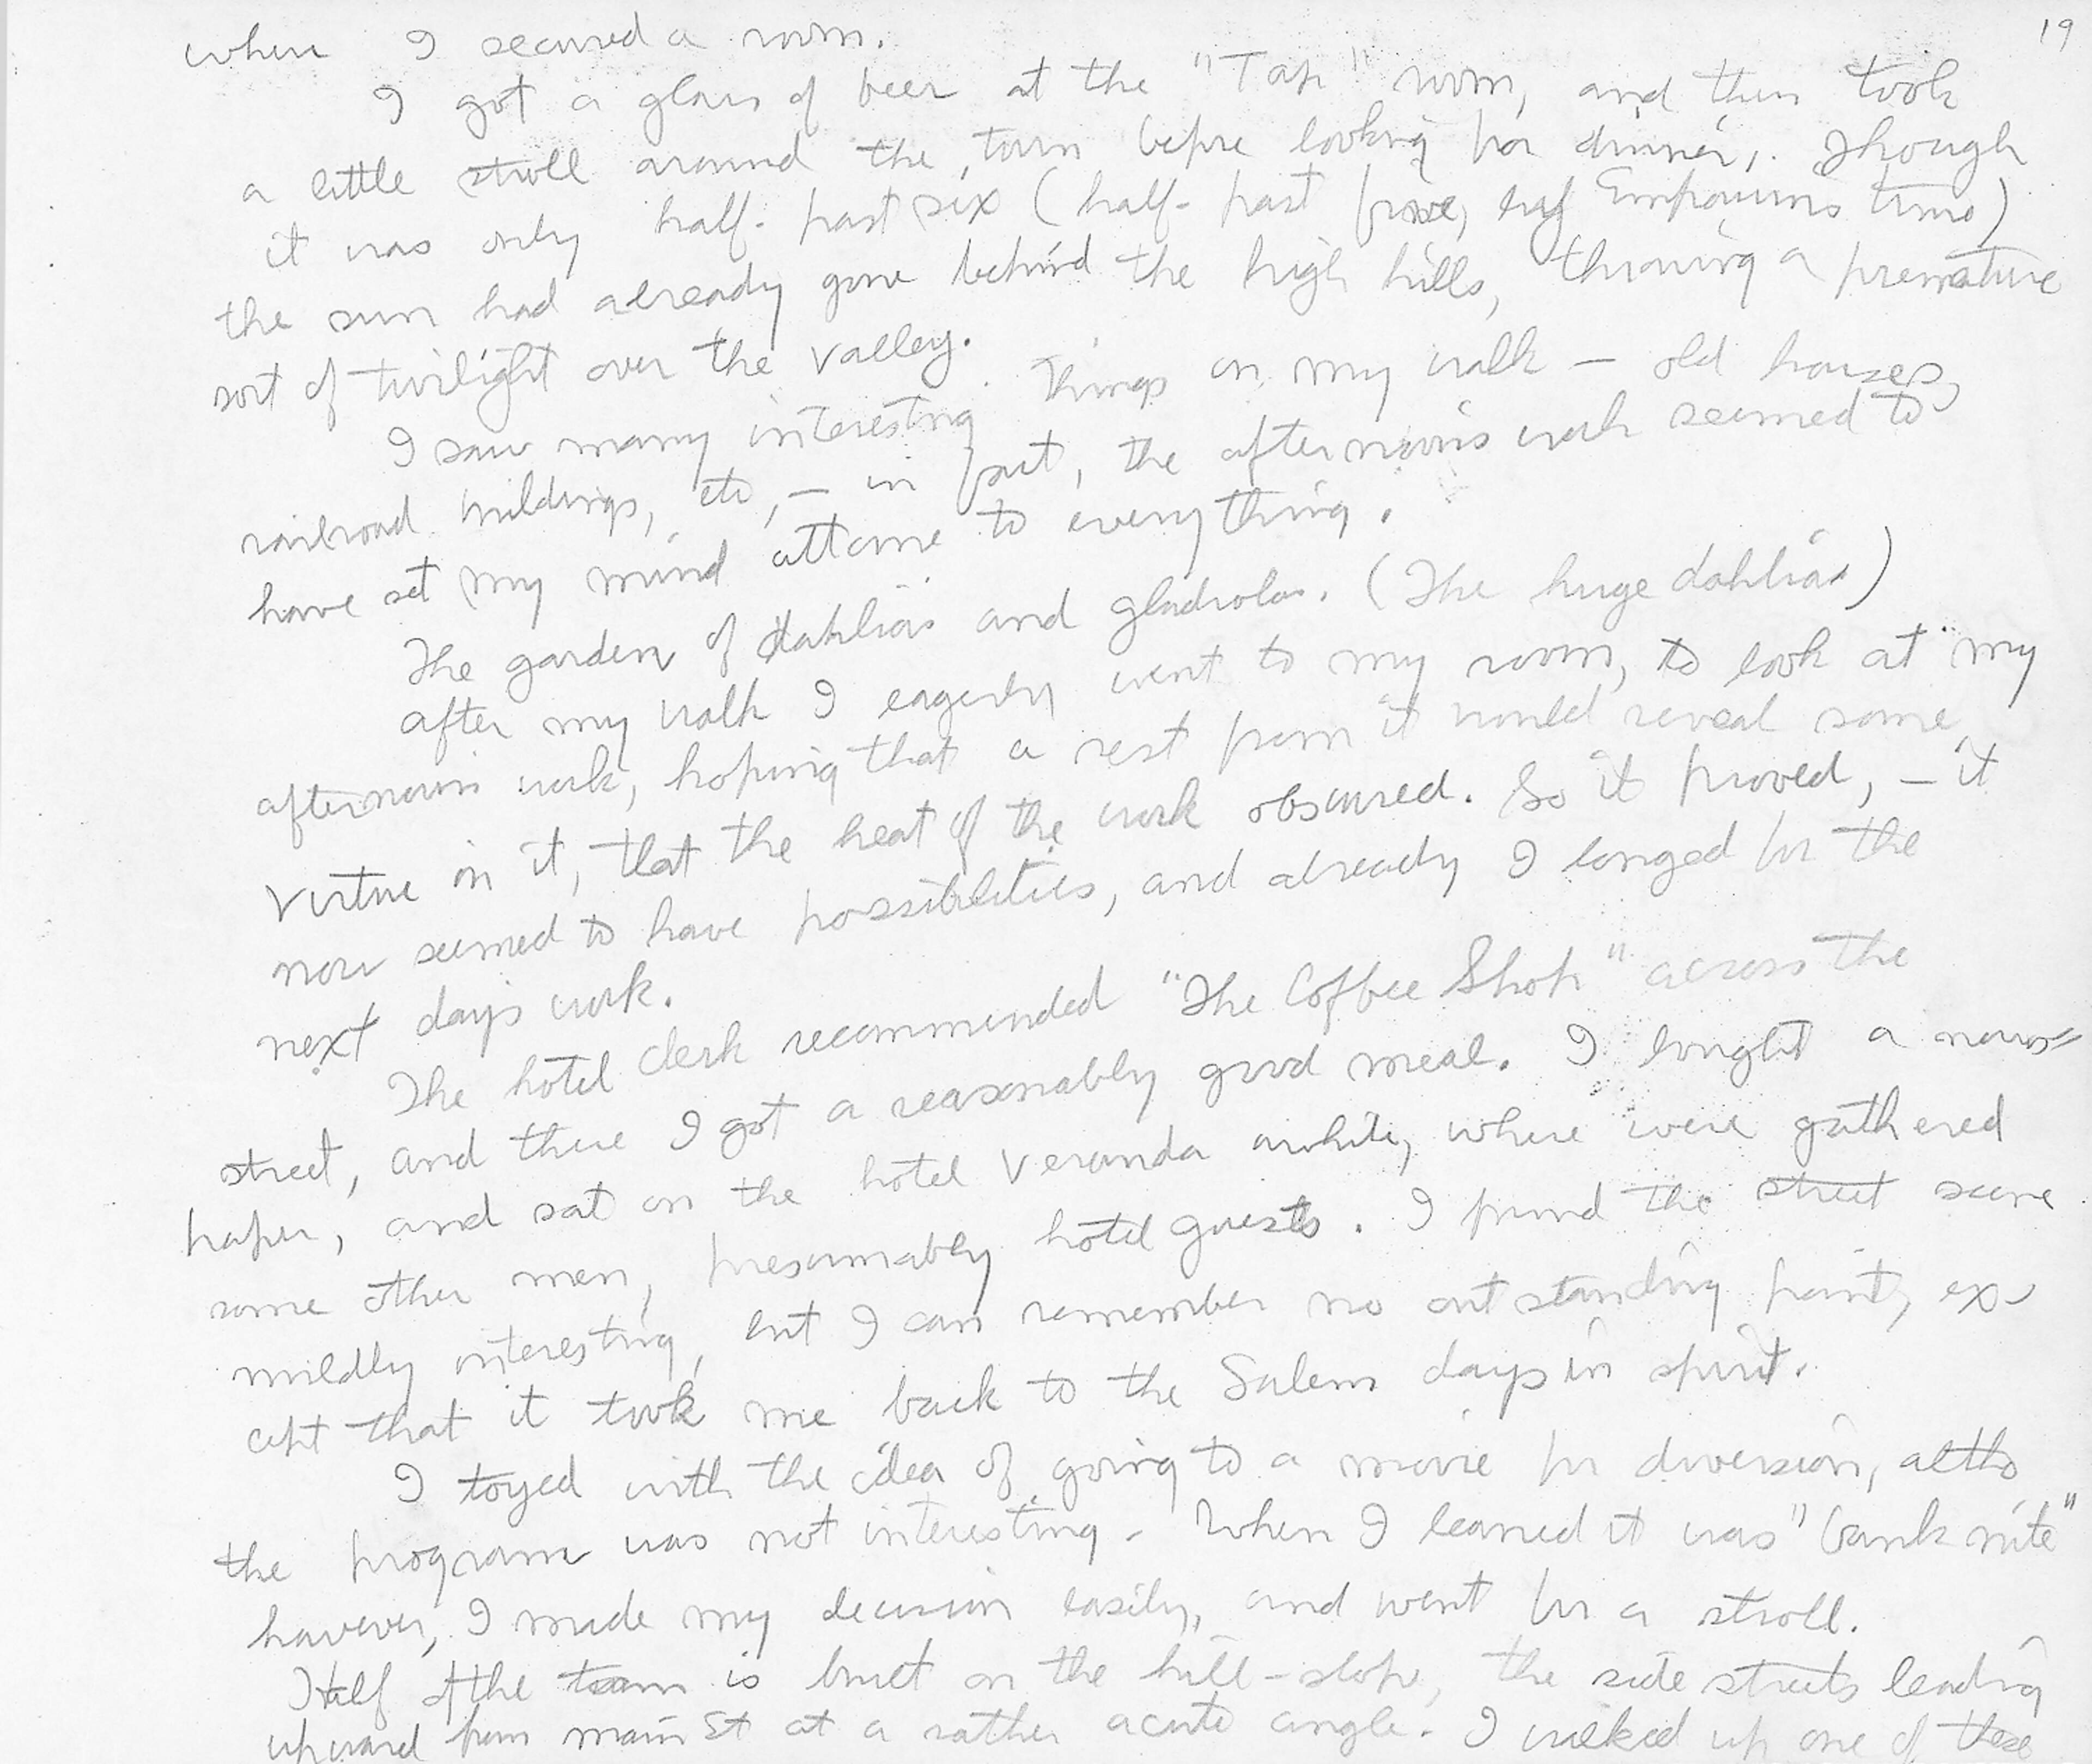 19
where I secured a room.
I got a glass of beer at the "Tap" room, and then took
a little stroll around the town before looking for dinner. Though
it was only half-past six (half-past five, Emporiums time)
the sun had already gone behind the high hills, throwing a premature
sort of twilight over the valley.
I saw many interesting things on my walk — old houses,
railroad buildings, etc, — in fact, the afternoons work seemed to
have set my mind attune to everything.
The garden of dahlias and gladiolas. (The huge dahlias)
After my walk I eagerly went to my room, to look at my
afternoons work, hoping that a rest from it would reveal some
virtue in it, that the heat of the work obscured. So it proved, — it
now seemed to have possibilities, and already I longed for the
next days work.
The hotel clerk recommended "The Coffee Shop" across the
street, and there I got a reasonably good meal. I bought a news=
paper, and sat on the hotel veranda awhile, where were gathered
some other men, presumably hotel guests. I found the street scene
mildly interesting, but I can remember no outstanding point, ex-
cept that it took me back to the Salem days in spirit.
I toyed with the idea of going to a movie for diversion, altho
the program was not interesting. When I learned it was "bank nite"
however, I made my decision easily, and went for a stroll.
Half of the town is built on the hill-slope, the side streets leading
upward from main St at a rather acute angle. I walked up one of these